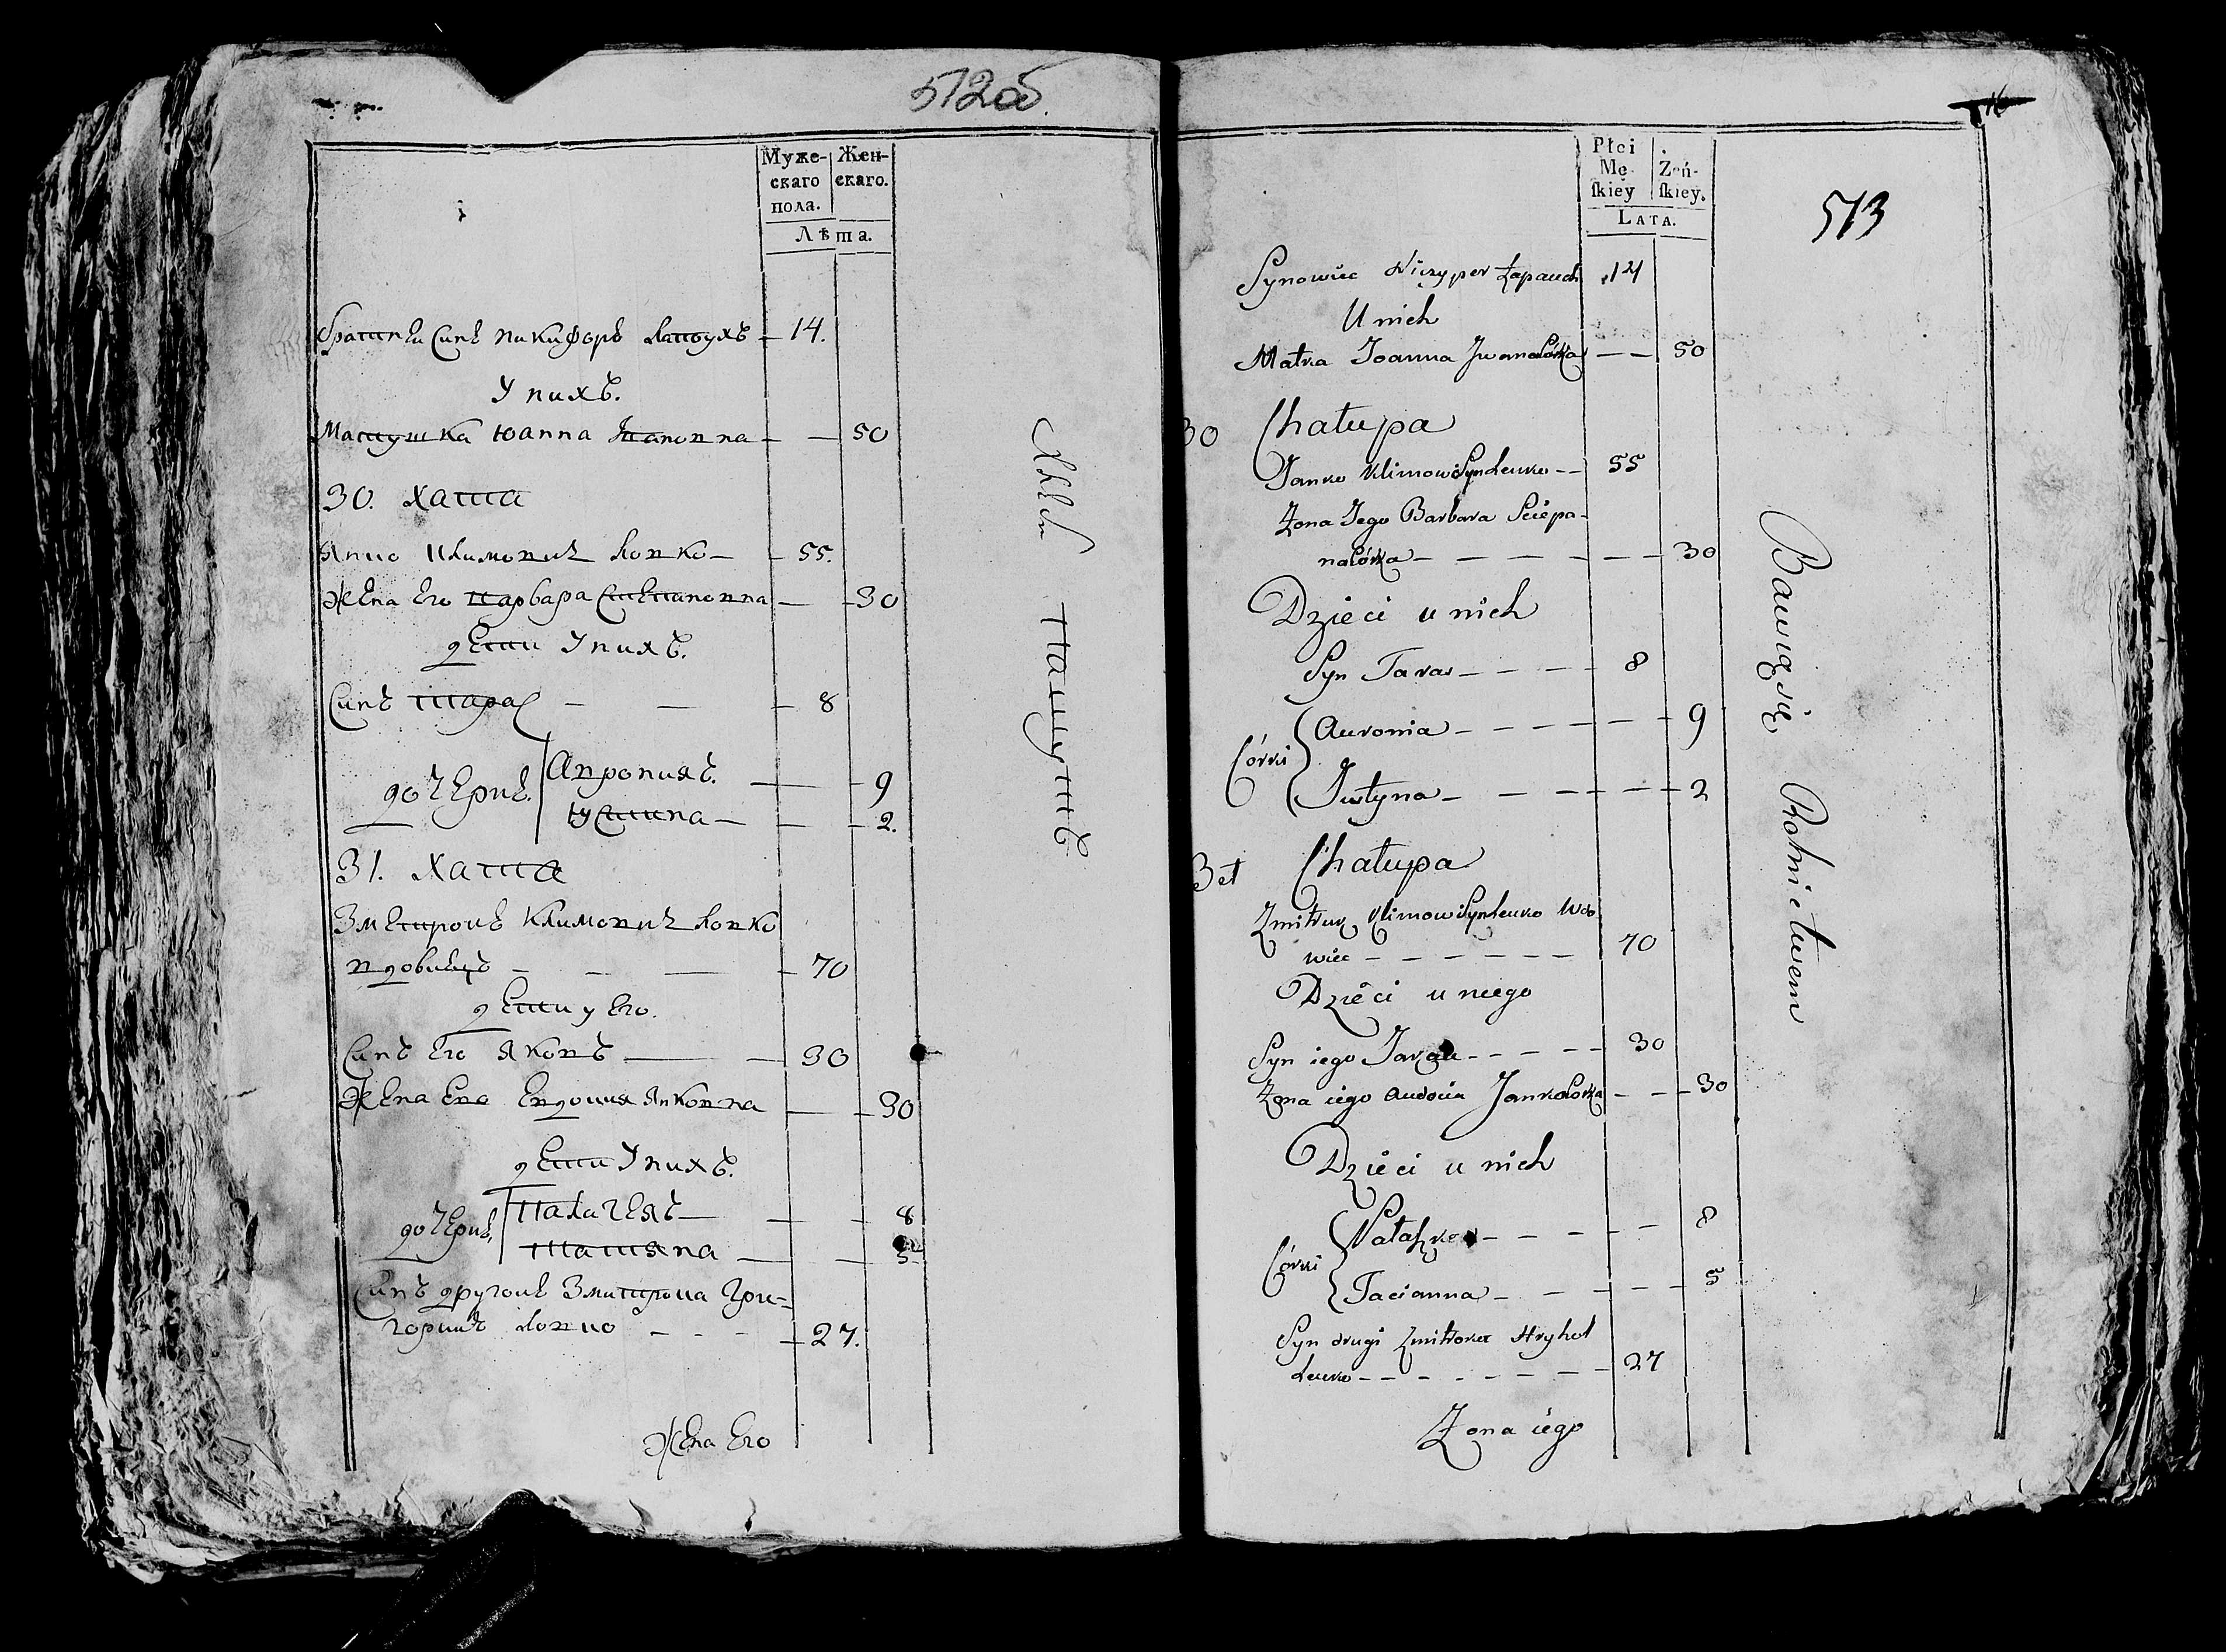 512об.
Муже-
скаго
пола.
Жен-
скаго.
Лѣта.
братни Синъ никифоръ лапоухъ — 14.
У нихъ.
Матушка Юанна — — 50
30. хата
Янко Климович ловко — — 55.
жена Его варвара Степановна — — 30
дети У нихъ.
Синъ тарас — — — 8
дочери.
Авронияъ. — — 9
Юстина — — — 2.
31. хата
Змитрокъ Климовичъ ловко
вдовецъ — — — — 70
дети у Его.
Синъ Его Яковъ — — 30
жена Ево Евдокия Янковна — — 30
дети У нихъ.
дочери,
Палагеяъ — — — 8
татяна — — 5
Синъ другой Змитрока Гри-
горий ловко — — — — 27.
жена Его
хлеб пашутъ
Płci
Mę-
ſkiey
Żeń-
ſkiey.
LATA.
513
Synowiec Niczyper Łapauch 14
U nich
Matka Joanna Jwanaŏwka — — 50
30 Chałupa
Janko Klimow Syn Leuko — — 55
Żona Jego Barbara Sciepa-
naŏwka — — — — — — 30
Dzieci u nich
Syn Taras — — — — 8
Córki
Auronia — — — — — — 9
Justyna — — — — — — 2
31 Chałupa
Zmitruk Klimow Syn Leuko Wdo
wiec — — — — — — 70
Dzieci u niego
Syn iego — — — — 30
Żona iego Audocia Jankoŏwka — — 30
Dzieci u nich
Córki
Natałka — — — — — 8
Tacianna — — — — — 5
Syn drugi Zmitroka Hryhol
Leuko — — — — — — — — 27
Żona iego
Bawią się Rolnictwem